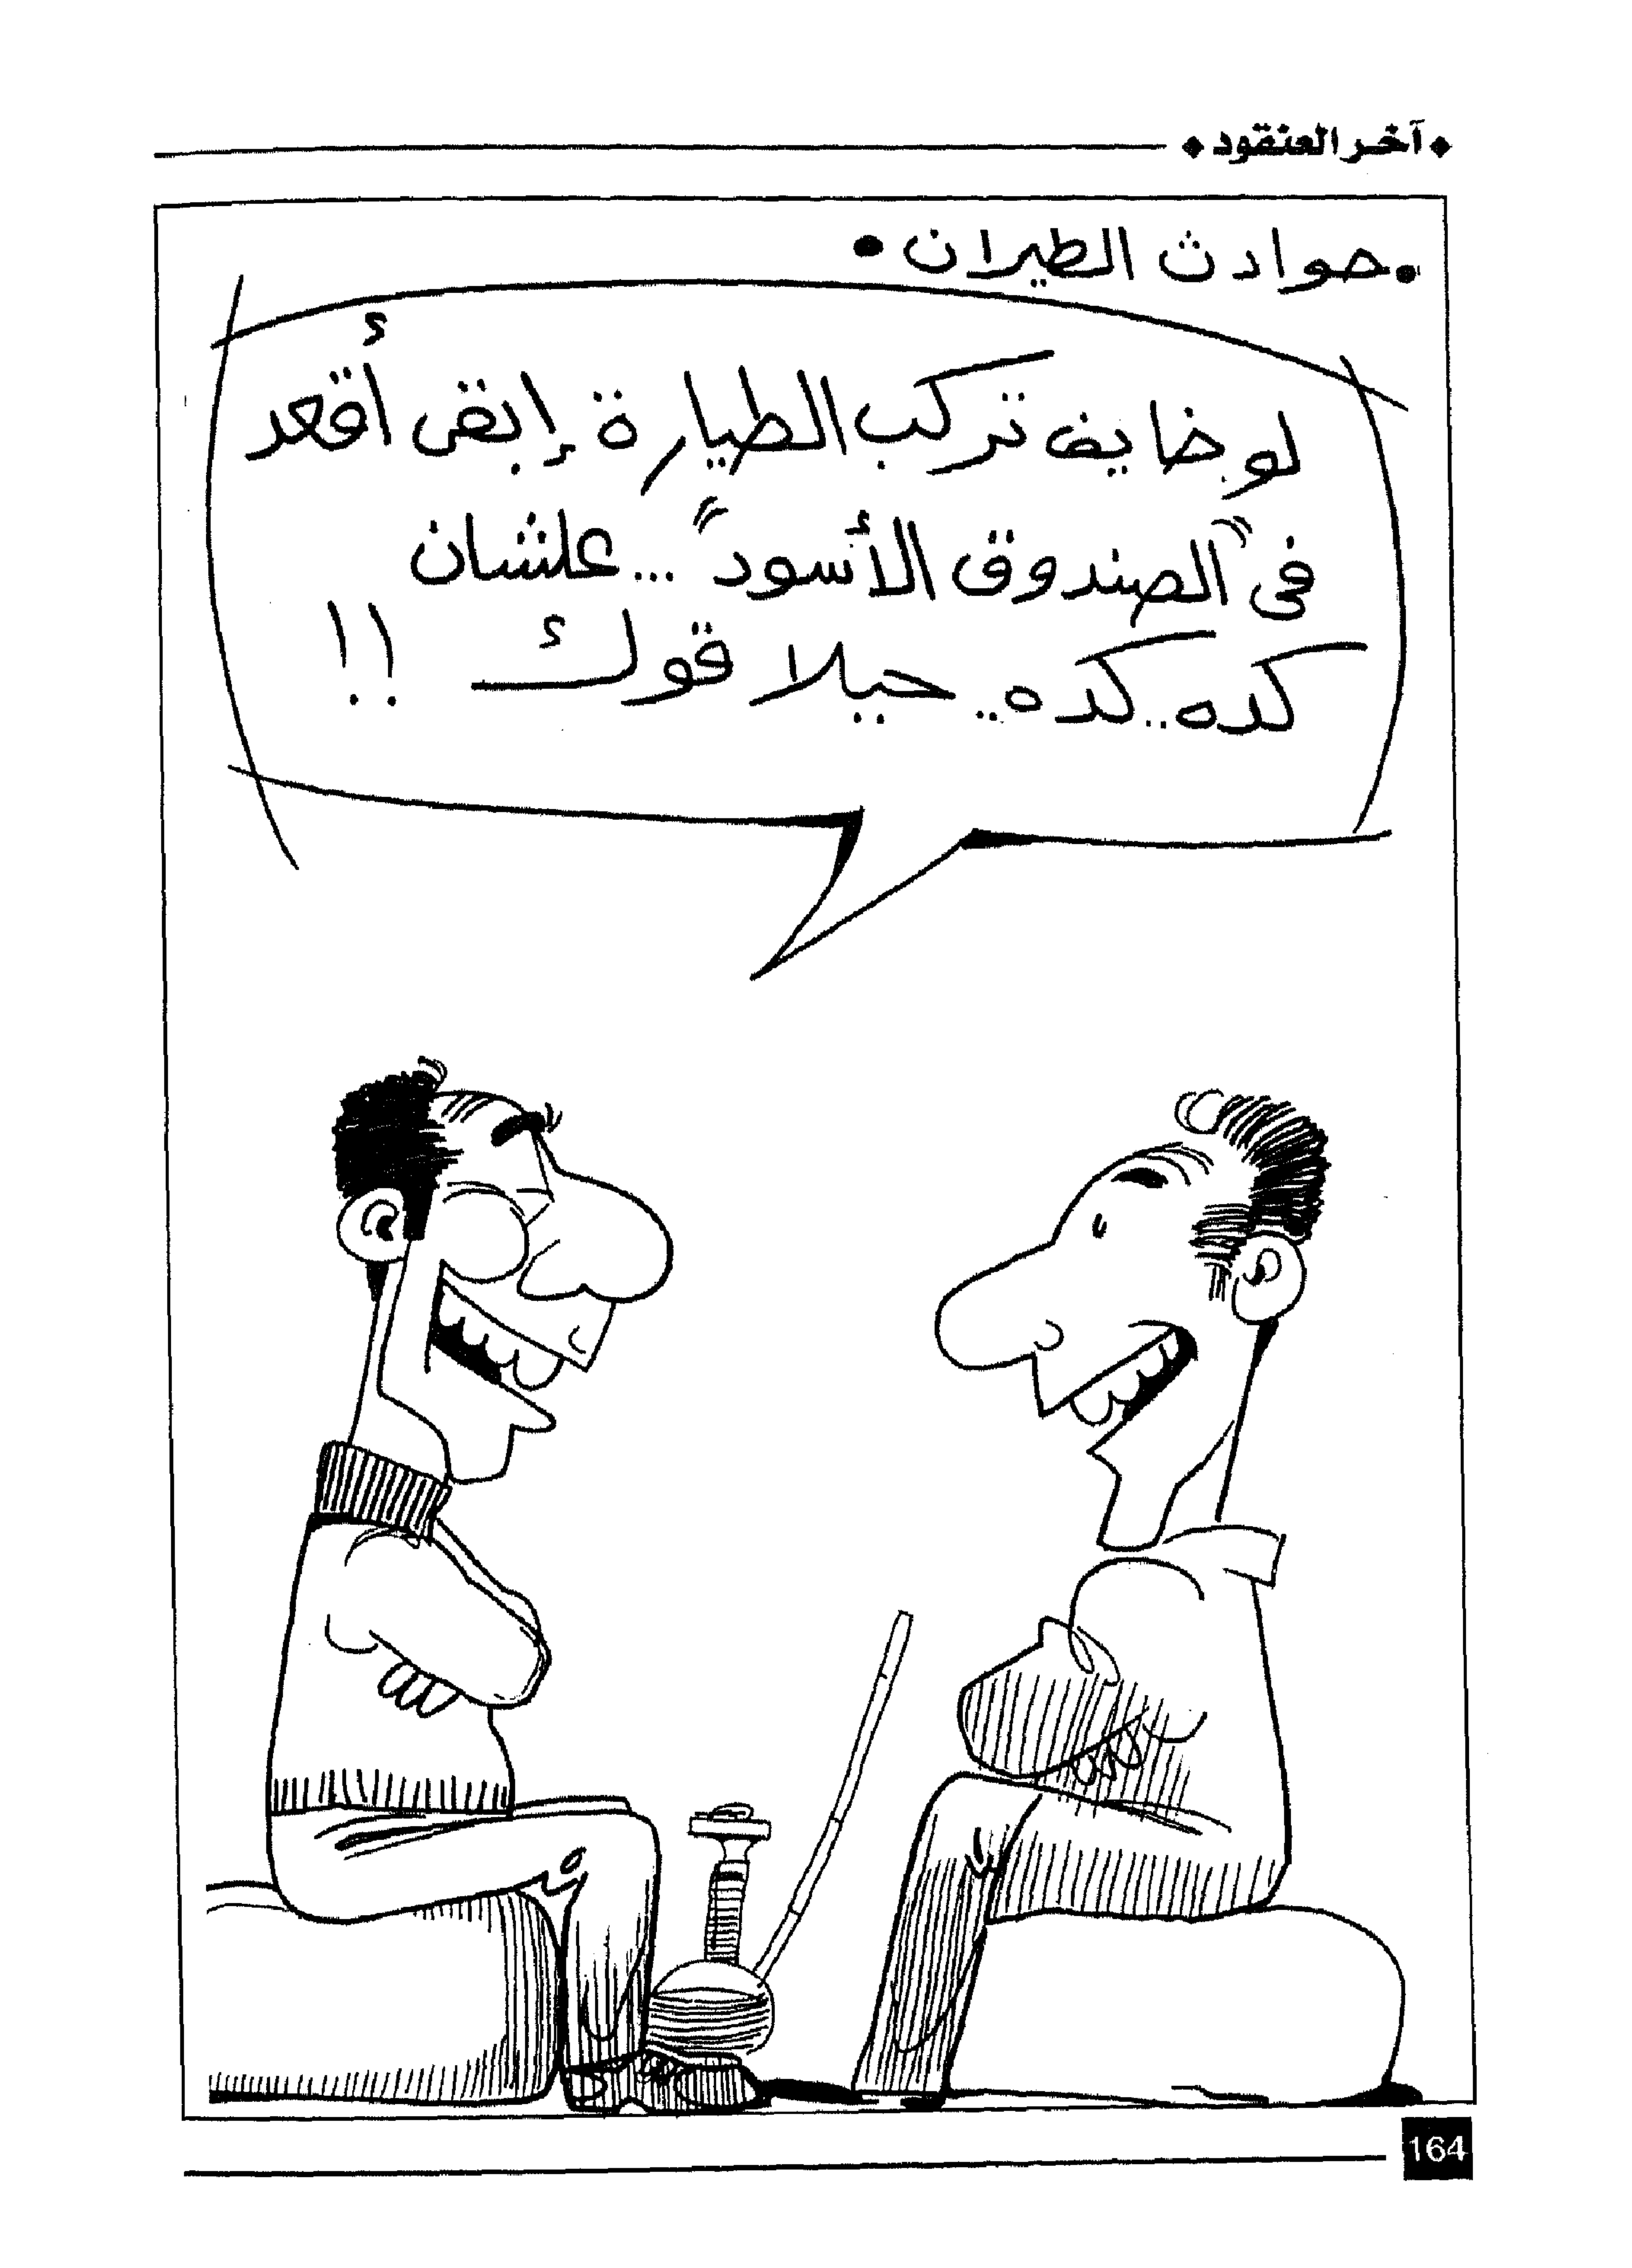 آخر العنقود
• حوادث الطيران •
لو خايف تركب الطيارة إبقى أقعد
فى "الصندوق الأسود" ... علشان
كده .. كده .. حيلاقوك !!
164